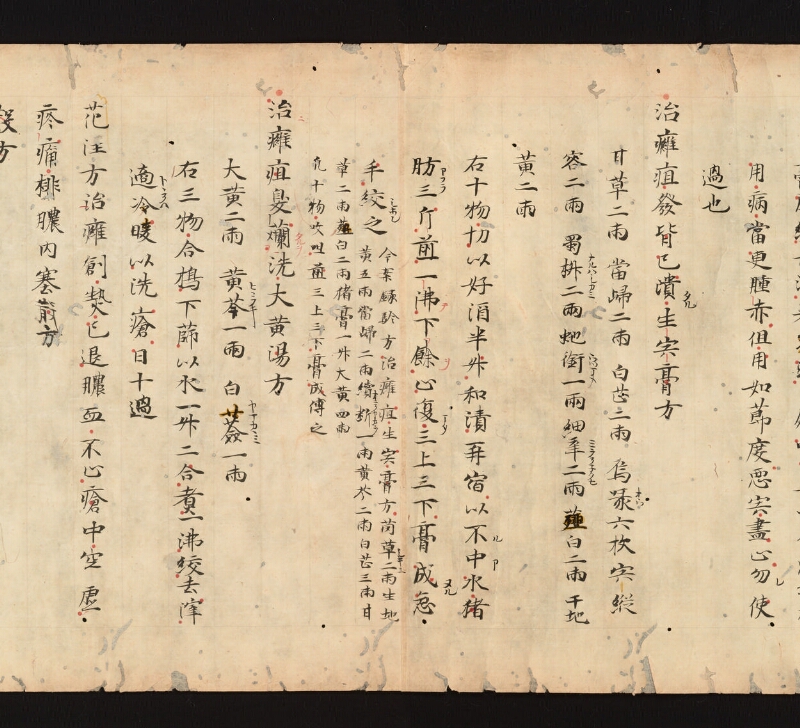 用病當更腫赤但用如節度惡宍盡止勿使
過也
治癰疽發背已潰生宍膏方
甘草二兩 當歸二兩 白芷二兩 烏喙六枚 宍縱
容二兩 蜀椒二兩 虵銜一兩 細辛二兩 薤白二兩 干地
黃二兩
右十物切以好酒半升和漬再宿以不中水猪
肪三斤煎一沸下餘止復三上三下膏成急
手絞之 今案録驗方治癰疽生宍膏方 䒢草二兩 生地
黃五兩 當歸二兩 續斷一兩 黃芩二兩 白芷三兩 甘
草二兩 薤白二兩 猪膏一升 大黃四兩
凡十物㕮咀煎三上三下膏成傅之
治癰疽𣫍爛洗大黃湯方
大黃二兩 黃芩一兩 白薟一兩
右三物合搗下篩以水一升二合煮一沸絞去滓
適冷暖以洗瘡日十過
范汪方治癰創熱已退膿血不止瘡中空虛
疼痛排膿內塞散方